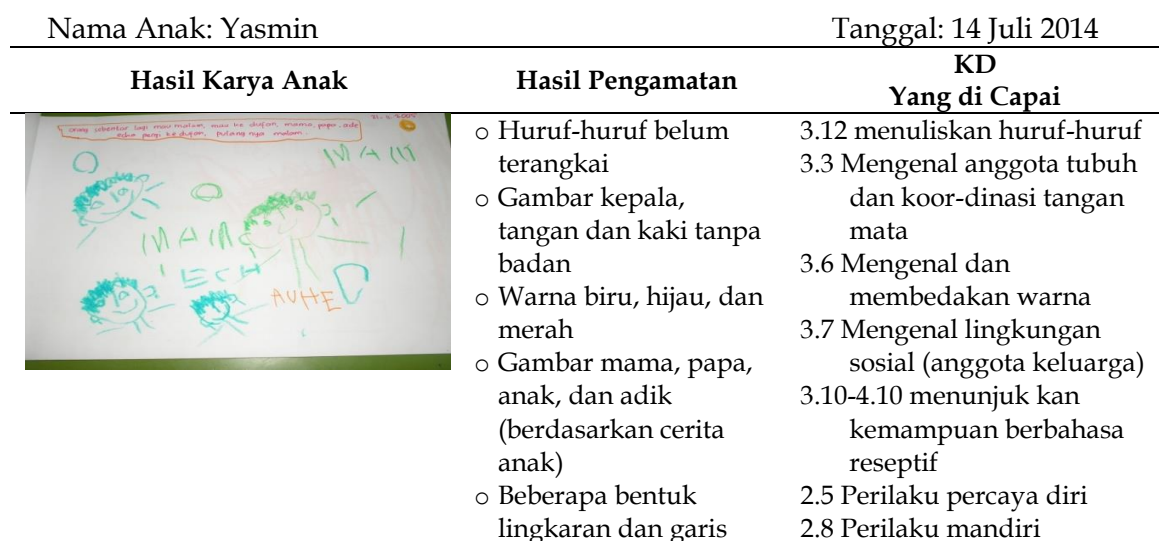 Nama Anak: Yasmin Tanggal: 14 Juli 2014
Hasil Karya Anak Hasil Pengamatan KD
Yang di Capai
orang sebentar lagi mau malam, mau ke dufan, mama, papa, ade
echa pergi ke dufan, pulang nya malam.
MAM
ECH
AUHE
o Huruf-huruf belum
terangkai
o Gambar kepala,
tangan dan kaki tanpa
badan
o Warna biru, hijau, dan
merah
o Gambar mama, papa,
anak, dan adik
(berdasarkan cerita
anak)
o Beberapa bentuk
lingkaran dan garis
3.12 menuliskan huruf-huruf
3.3 Mengenal anggota tubuh
dan koor-dinasi tangan
mata
3.6 Mengenal dan
membedakan warna
3.7 Mengenal lingkungan
sosial (anggota keluarga)
3.10-4.10 menunjuk kan
kemampuan berbahasa
reseptif
2.5 Perilaku percaya diri
2.8 Perilaku mandiri